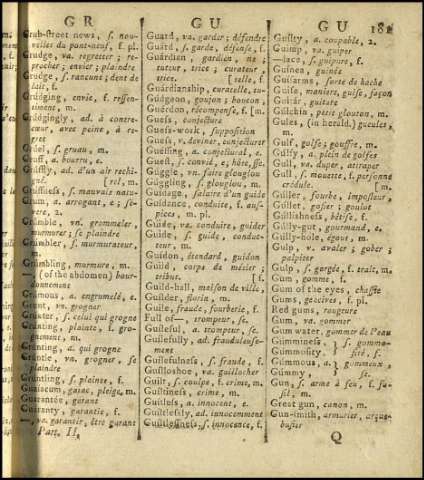 GR
GU
GU 181
Grub-street news, s. nou-
velles du pont-neuf, f. pl.
Grudge, va. regretter ; re-
procher ; envier ; plaindre
Grudge, s. rancune ; dent de
lait, f.
Grudging, envie, f. ressen-
timent, m.
Grudgingly, ad. à contre-
cœur, avec peine, à re-
gret
Gruel, s. gruau, m.
Gruff, a. bourru, e.
Gruffly, ad. d'un air rechi-
gné. [rol, m.
Gruffiness, s. mauvais natu-
Grum, a. arrogant, e ; sé-
vere, 2.
Grumble, vn. grommeler,
murmurer ; se plaindre
Grumbler, s. murmurateur,
m.
Grumbling, murmure, m.
—, (of the abdomen) bour-
donnement
Grumous, a. engrumelé, e.
Grunt, vn. grogner
Grunter, s. celui qui grogne
Grunting, plainte, f. gro-
gnement, m.
Grunting, a. qui grogne
Gruntle, vn. grogner, se
plaindre
Grunting, s. plainte, f.
Guaiacum, garac, pleige, m.
Guarantee, garant
Guaranty, garantie, f.
—, va. garantir, être garant
Part. II,
Guard, va. garder ; défendre
Guard, s. garde, défense, f.
Guardian, gardien, ne ;
tuteur, trice ; curateur,
trice. [telle, f.
Guardianship, curatelle, tu-
Gudgeon, goujon ; boucon
Guerdon, récompense, f. [m.
Guess, conjecture
Guess-work, supposition
Guess, v. deviner, conjecturer
Guessing, a. conjectural, e.
Guest, s. convié, e ; hôte, sse.
Guggle, vn. faire glouglou
Guggling, s. glouglou, m.
Guidage, salaire d'un guide
Guidance, conduite, f. aus-
pices, m. pl.
Guide, va. conduire, guider
Guide, s. guide, conduc-
teur, m.
Guidon, étendard, guidon
Guild, corps de métier ;
tribut. [f.
Guild-hall, maison de ville,
Guilder, florin, m.
Guile, fraude, fourberie, f.
Full of—, trompeur, se.
Guileful, a. trompeur, se.
Guilefully, ad. frauduleuse-
ment
Guilefulness, s. fraude, f.
Guilloshoe, va. guillocher
Guilt, s. coulpe, f. crime, m.
Guiltiness, crime, m.
Guiltless, a. innocent, e.
Guiltlessly, ad. innocemment
Guiltlessness, s. innocence, f.
Guilty, a. coupable, 2.
Guimp, va. guiper
—lace, s. guipure, f.
Guinea, guinée
Guisarms, sorte de hache
Guise, maniere, guise, façon
Guitar, guitare
Gulchin, petit glouton, m.
Gules, (in herald.) gueules,
m.
Gulf, golfe ; gouffre, m.
Gulfy, a. plein de golfes
Gull, va. duper, attraper
Gull, s. mouette, f. personne
crédule. [m.
Guller, fourbe, imposteur,
Gullet, gosier ; goulot
Gullishness, bêtise, f.
Gully-gut, gourmand, e.
Gully-hole, égout, m.
Gulp, v. avaler ; gober ;
palpiter
Gulp, s. gorgée, f. trait, m.
Gum, gomme, f.
Gum of the eyes, chassie
Gums, gencives, f. pl.
Red gums, rougeure
Gum, va. gommer
Gum water, gommer de l'eau
Gumminess, } s. gommo-
Gummosity, } sité, f.
Gummous, } a. gommeux,
Gummy, } se.
Gun, s. arme à feu, f. fu-
sil, m.
Great gun, canon, m.
Gun-smith, armurier, arque-
busier
Q